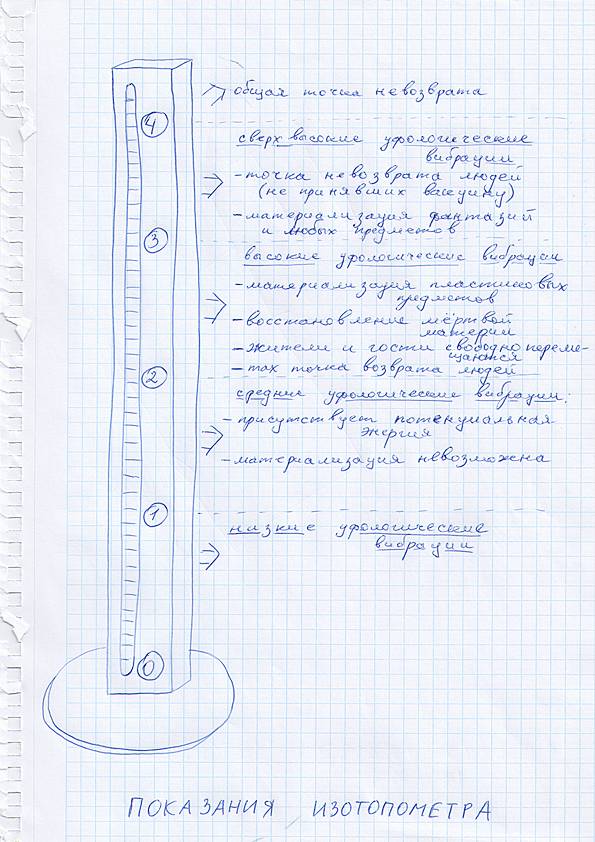 общая точка невозврата
4
сверхвысокие уфологические
вибрации
- точка невозврата людей
(не принявших вакцину)
- материализация фантазий
и любых предметов
3
высокие уфологические вибрации
- материализация пластиковых
предметов
- восстановление мёртвой
материи
- жители и гости свободно переме-
щаются
- max точка возврата людей
2
средние уфологические вибрации:
- присутствует потенциальная
энергия
- материализация невозможна
1
низкие уфологические
вибрации
0
ПОКАЗАНИЯ ИЗОТОПОМЕТРА